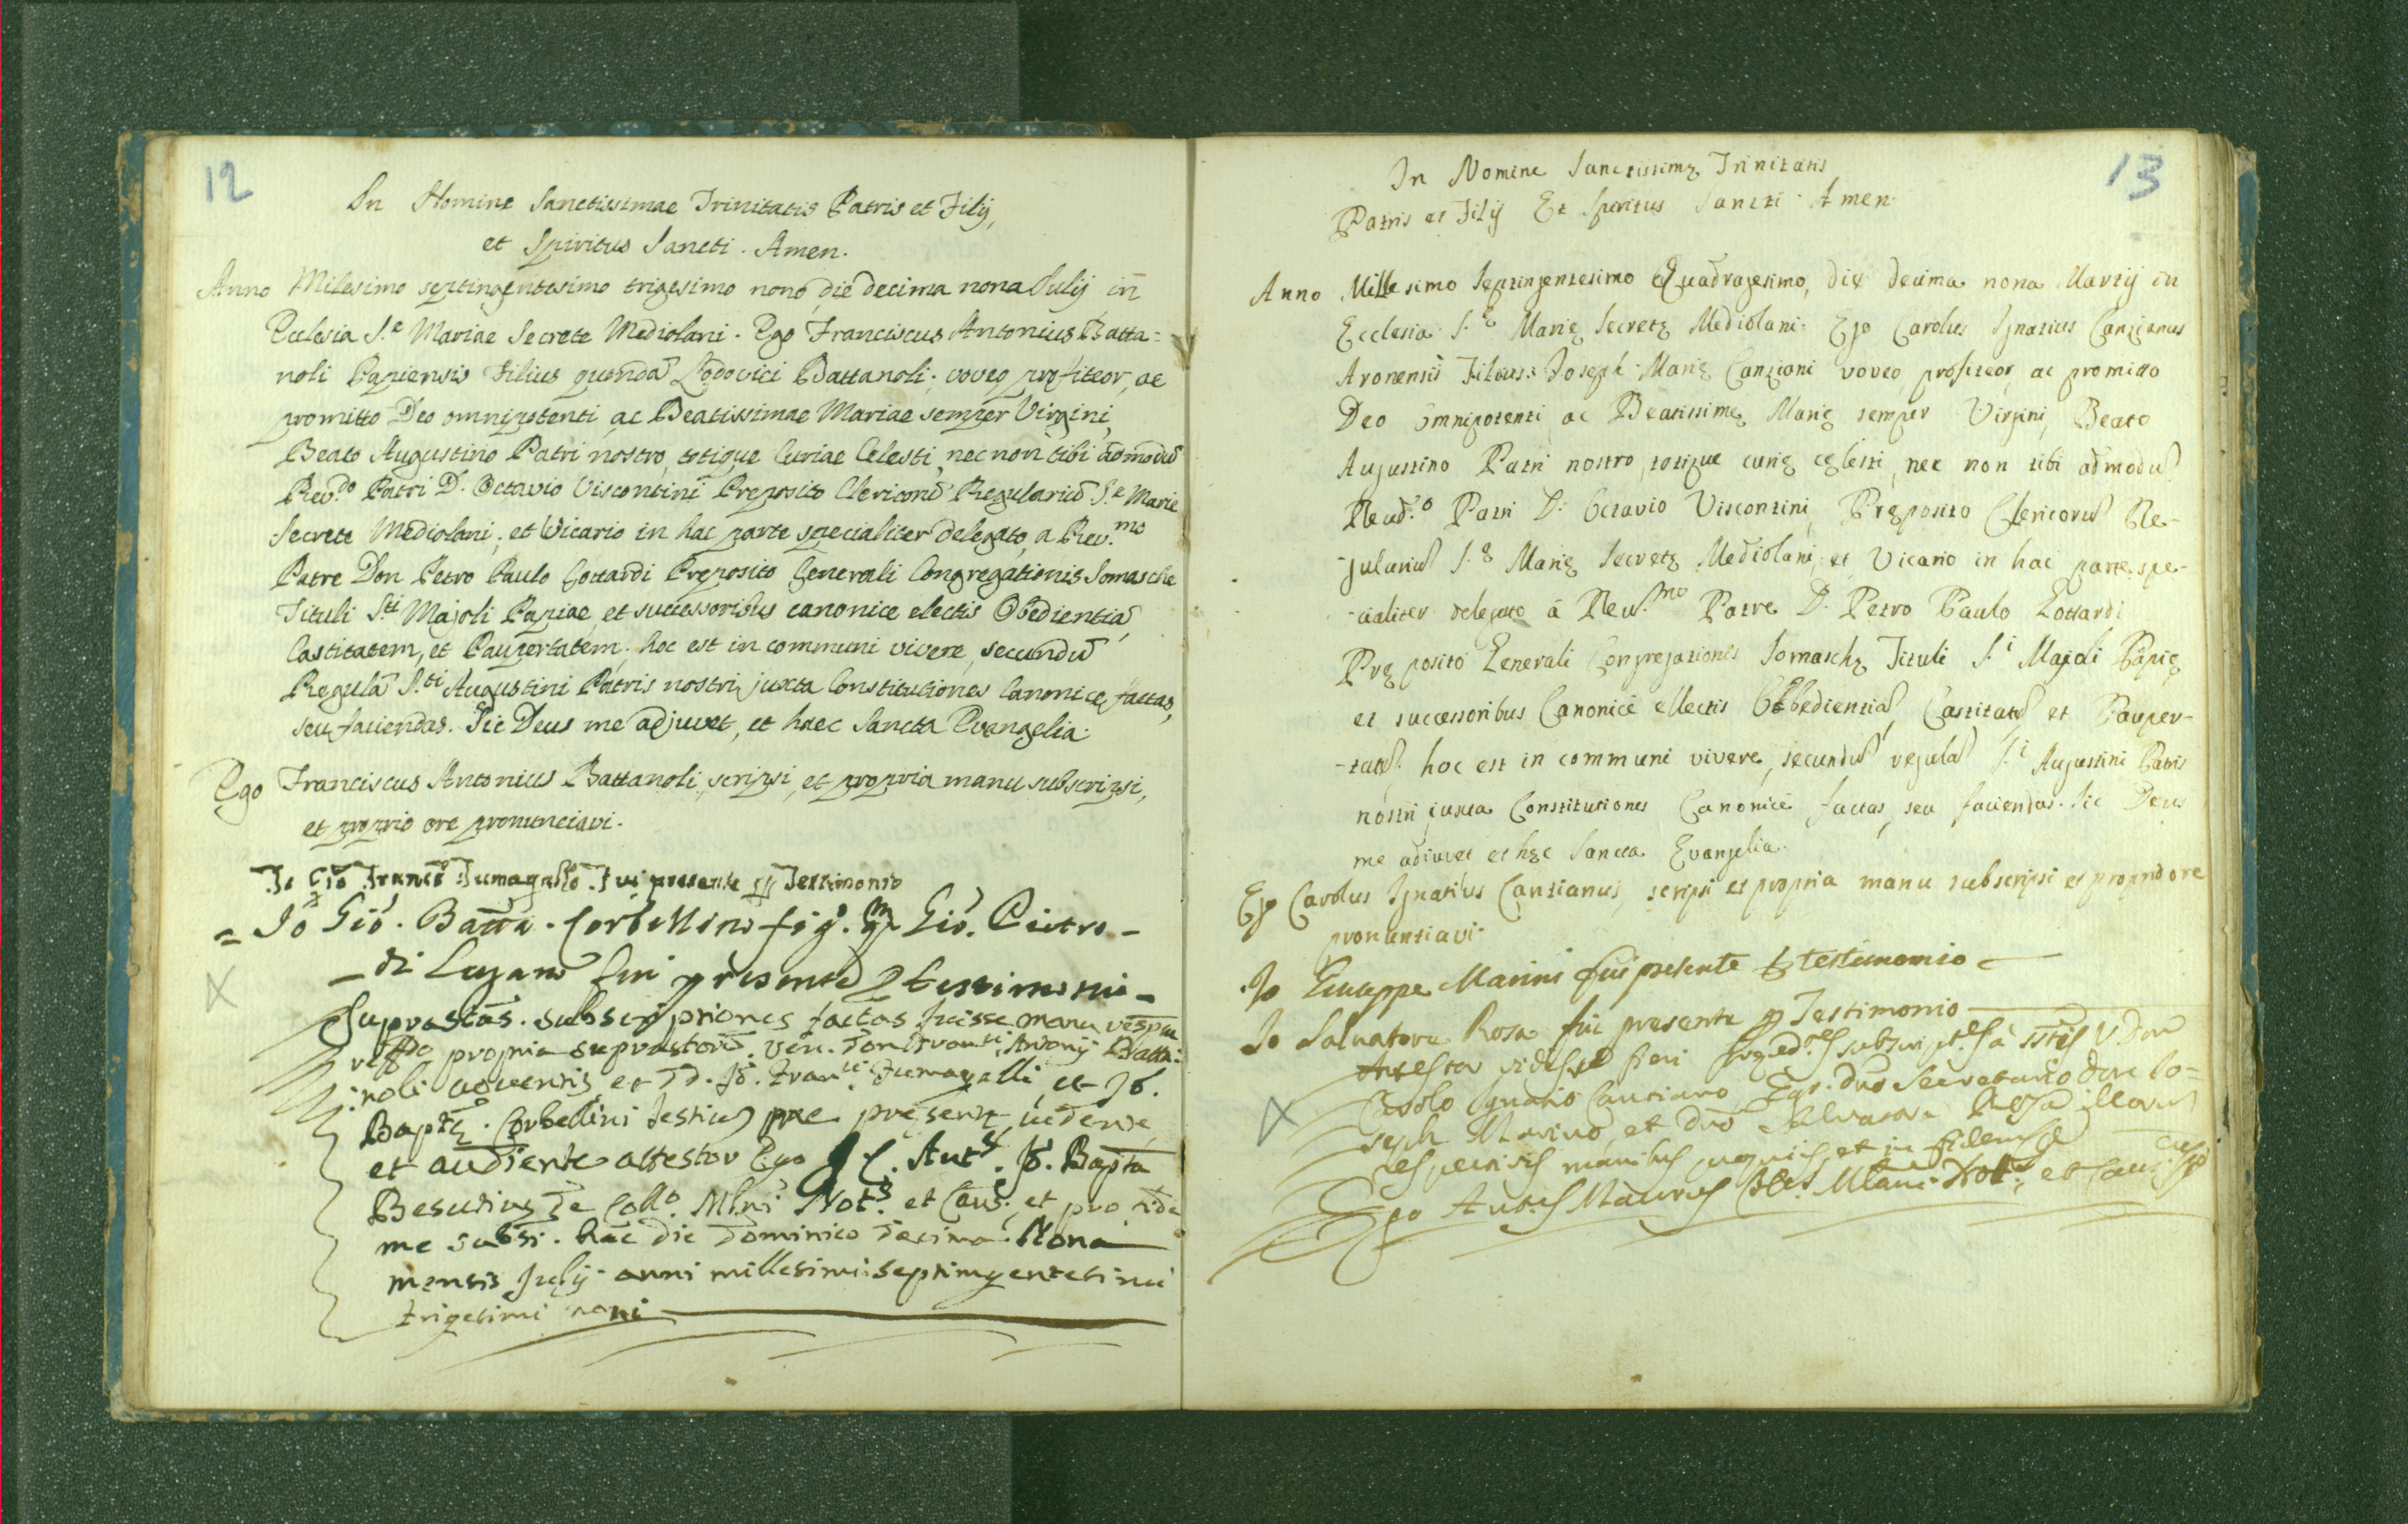 12
In Nomine Sanctissimae Trinitatis Patris et Filij,
et Spiritus Sancti. Amen.
Anno Milesimo septingentesimo trigesimo nono, die decima nona Julij in
Ecclesia S.e Mariae Secrete Mediolani. Ego Franciscus Antonius Batta=
noli Papiensis Filius quondã Lodovici Battanoli; voveo, profiteor, ac
promitto Deo omnipotenti, ac Beatissimae Mariae semper Virgini,
Beato Augustino Patri nostro, totique Curiae Celesti, nec non tibi admodũ
Rev.do Patri D. Octavio Viscontini Preposito Clericorũ Regulariũ S.e Marie
Secrete Mediolani, et Vicario in hac parte specialiter delegato, a Rev.mo
Patre Don Petro Paulo Gottardi Preposito Generali Congregationis Somasche
Tituli S.ti Majoli Papiae, et successoribus canonice electis Obedientiã,
Castitatem, et Paupertatem; hoc est in communi vivere, secundũ
Regulã S.ti Augustini Patris nostri, juxta Constitutiones Canonice factas,
seu faciendas. Sic Deus me adjuvet, et haec Sancta Evangelia.
Ego Franciscus Antonius Battanoli, scripsi, et propria manu subscripsi,
et proprio ore pronunciavi.
Io Gio Franco Fumagallo Fui presente per Testimonio
= Io Gio. Batta. Corbellino fig. qm Gio. Pietro -
- di Lugano fui presente testimonio -
Suprastas. subscriptiones factas fuisse manu
propria suprastorũ. Ven. Don Antonij Batta:
noli et DD. Jo. Fumagalli, et Jo.
Bapte. Corbellini testiũ me presente, videnre,
et audiente attestor Ego J. C. Ant.s Jo. Bapta
Besutius de Coll.o Mlni Not.s et Caus. et pro fide
me subsi. hac die Dominico Decima Nona
mensis Julij anni millesimi septimgentesimi
trigesimi noni
13
In Nomine Sanctissimę Trinitatis
Patris et Filij Et Spiritus Sancti Amen
Anno Millesimo Septingentesimo Quadragesimo, die decima nona Martij in
Ecclesia S.ę Marię Secretę Mediolani. Ego Carolus Ignatius Canzianus
Aronensis Filius Joseph Marię Canziani voveo, profiteor, ac promitto
Deo omnipotenti, ac Beatissimę Marię semper Virgini, Beato
Augustino Patri nostro, totique curię cęlesti, nec non tibi admodũ
Reud.o Patri D. Octavio Viscontini, Pręposito Clericorũ Re-
-gulariũ S.ę Marię Secretę Mediolani, et Vicario in hac parte spe-
-cialiter delegato á Reu.mo Patre D. Petro Paulo Gottardi
Pręposito Generali Congregationis Somaschę Tituli S.i Majoli Papię
et successoribus Canonicè ellectis Obbedientiã, Castitatẽ et Pauper-
-tatẽ. hoc est in communi vivere, secundũ regulã S.i Augustini Patris
nostri juxta Constitutiones Canonicè factas, seu faciendas. Sic Deus
me adiuvet et hęc Sancta Evangelia.
Ego Carolus Ignatius Canzianus, scripsi et propria manu subscripsi et proprio ore
pronuntiavi.
Io Giuseppe Marini fui presente per testimonio
Io Salvatore Rosa fui presente per Testimonio
Attestor vidisse fieri à V. Don
Carolo Ignatio Canciano, Secretario Don Jo=
seph Marino, et Dno Salvatore Rosa illorũ
respectivis manibus et in fidem
Ego Not. et